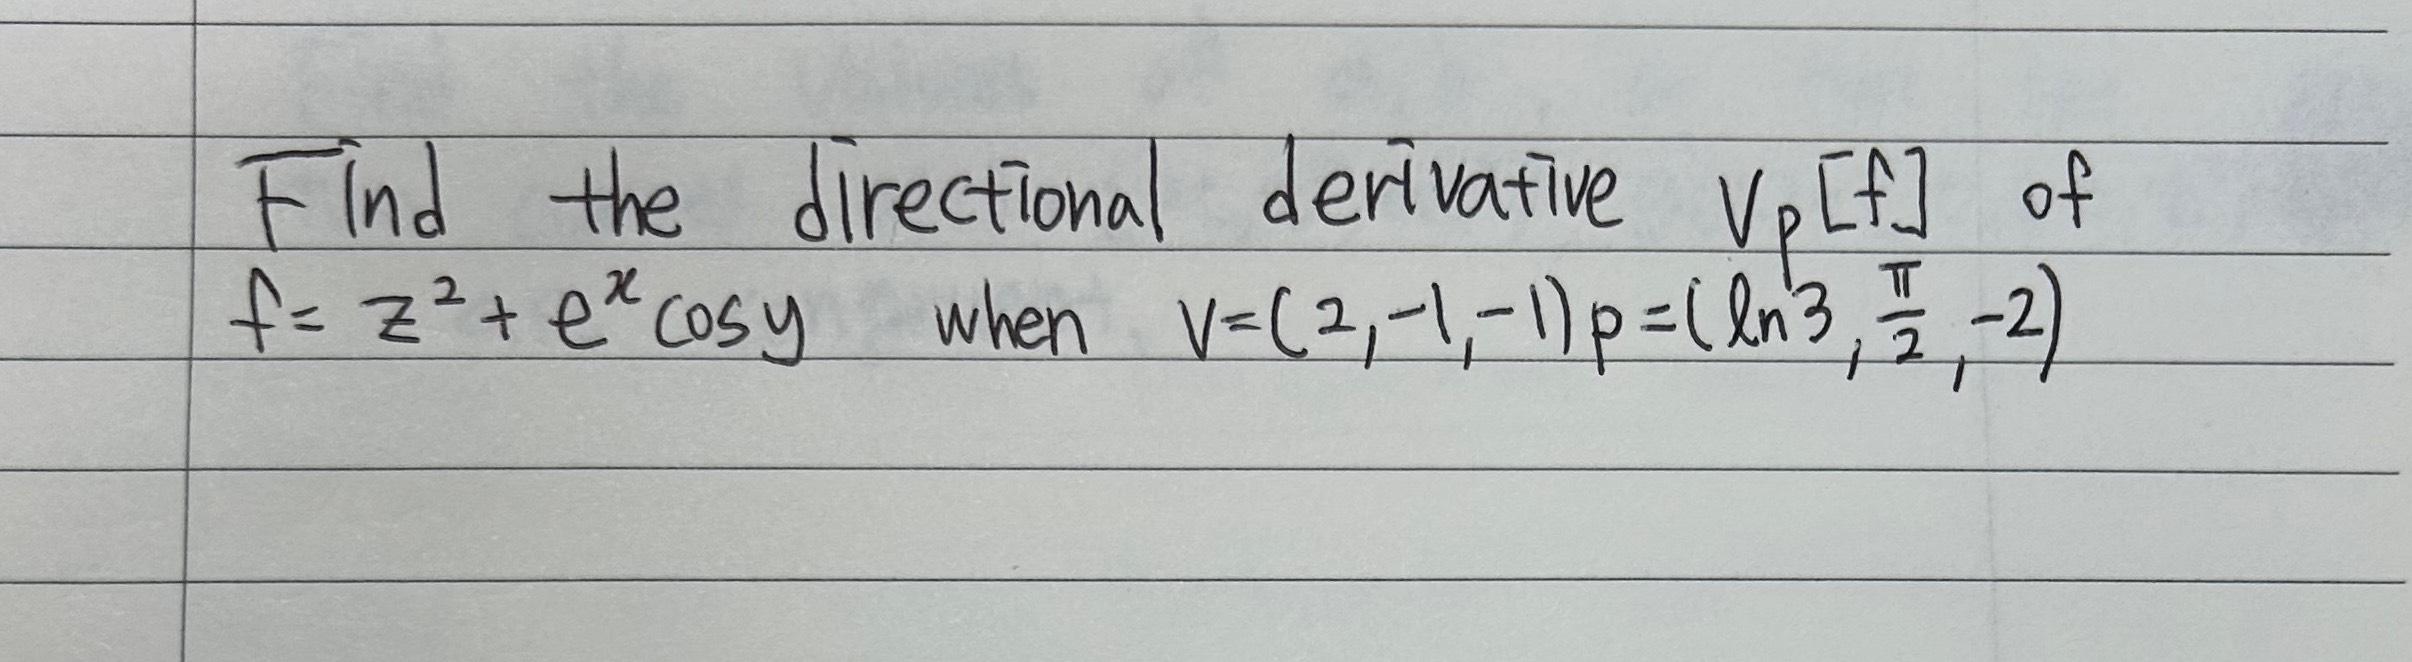 Find the directional derivative Vp[f] of
f= z² + eˣ cosy when v=(2,-1,-1) p=(ln3, π/2, -2)